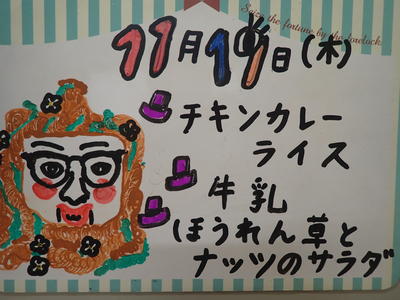 Seize the fortune by the forelock.
11月19日(木)
チキンカレー
ライス
牛乳
ほうれん草と
ナッツのサラダ